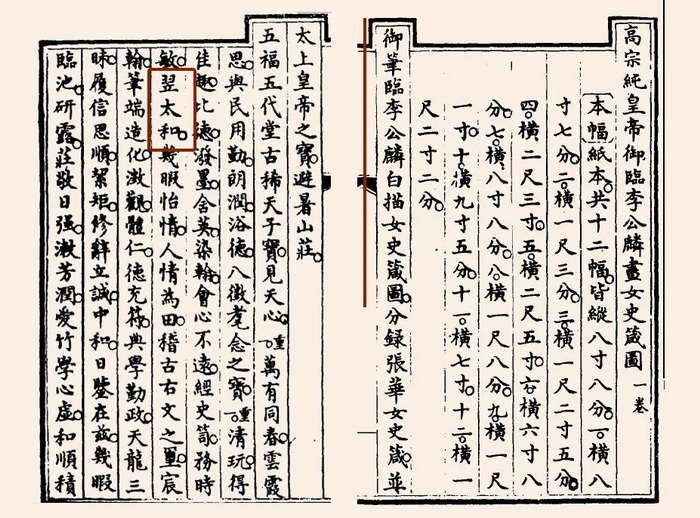 高宗純皇帝御臨李公麟畫女史箴圖一卷
本幅紙本共十二幅皆縱八寸八分一橫八
寸七分二橫一尺三分三橫一尺二寸五分
四橫二尺三寸五橫二尺五寸六橫六寸八
分七橫八寸八分八橫一尺八分九橫一尺
一寸十橫九寸五分十一橫七寸十二橫一
尺二寸二分
御筆臨李公麟白描女史箴圖分錄張華女史箴並
太上皇帝之寶避暑山莊
五福五代堂古稀天子寶見天心重一萬有同春雲霞
思與民用勤朗潤浴德八徵耄念之寶重一清玩得
佳趣比德潑墨含英染翰會心不遠經史笥務時
敏翌太和幾暇怡情人情為田稽古右文之璽宸
翰筆端造化澂觀體仁德充符典學勤政天龍三
昧履信思順絜矩修辭立誠中和日鑒在茲幾暇
臨池研露莊敬日強漱芳潤愛竹學心虛和順積